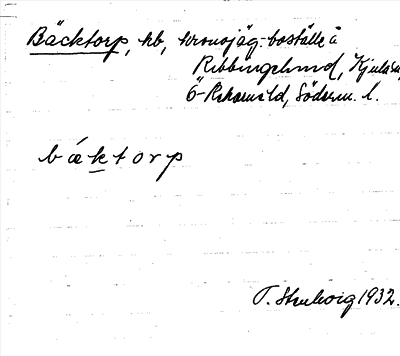 Bäcktorp, hb, kronojäg.-boställe å
Ribbingelund, Kjula sn,
Ö-Rekarne hd, Söderm. l.
bäktorp
1932.